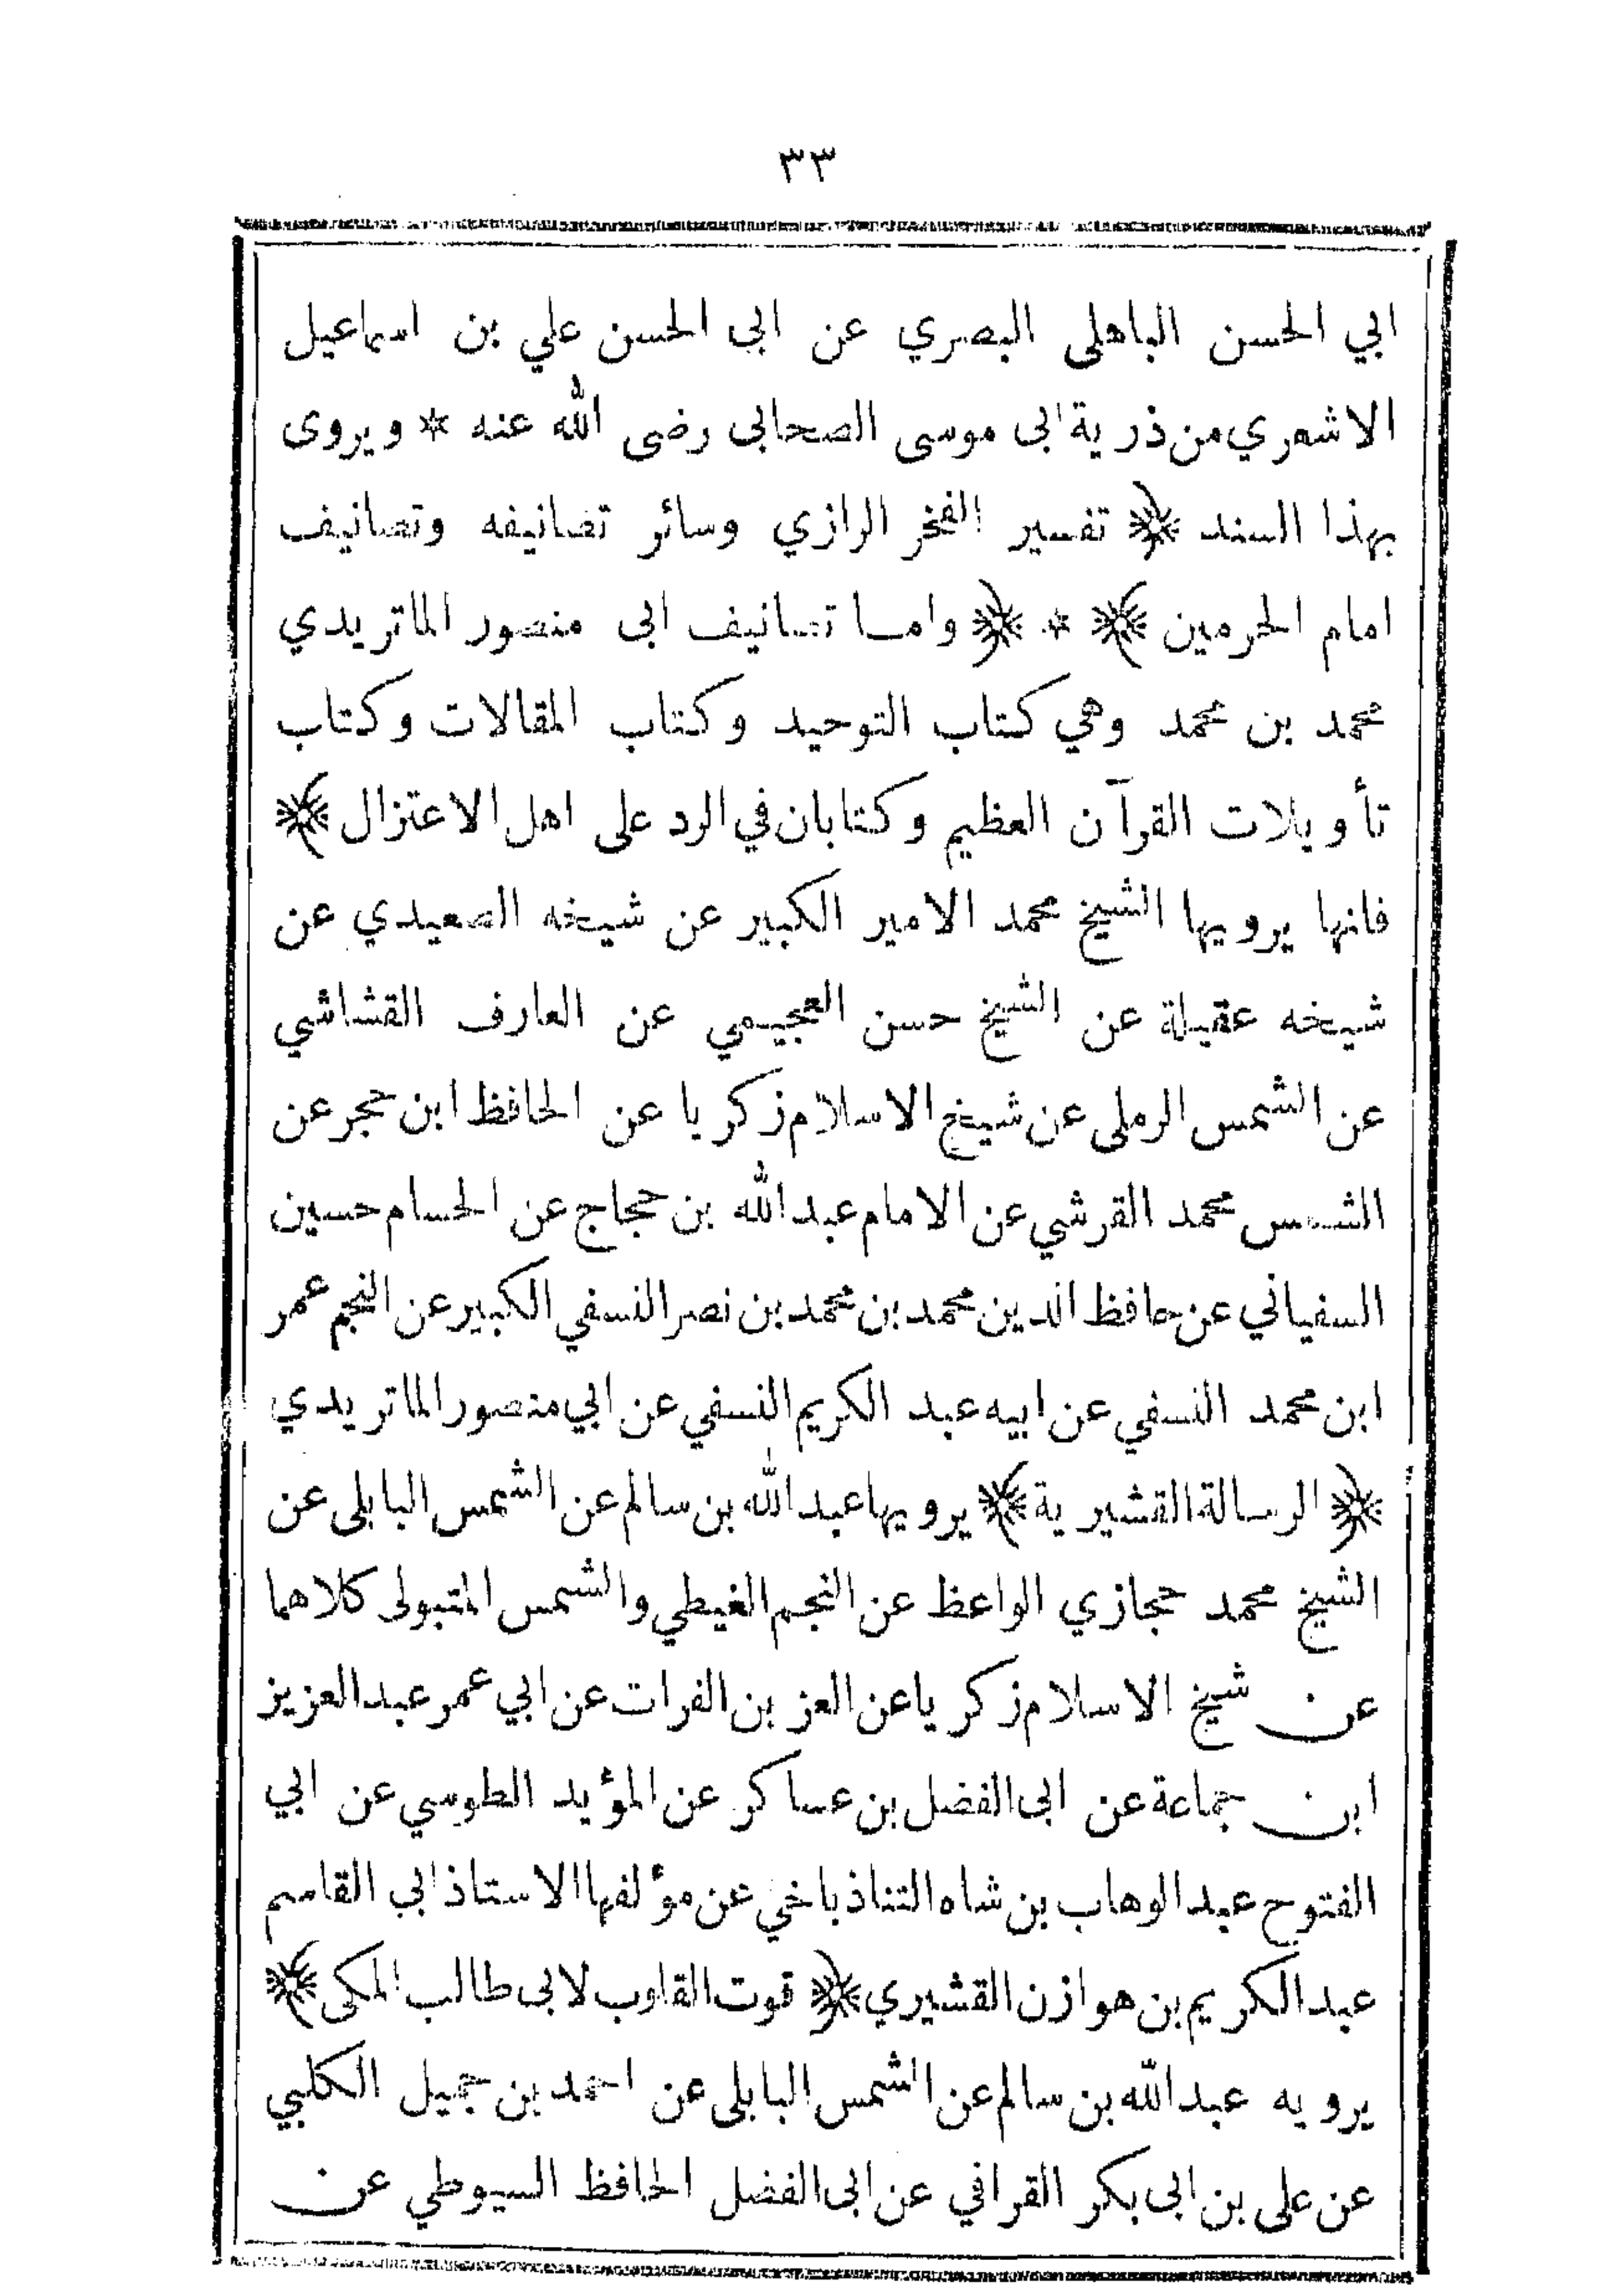 ٣٣
ابي الحسن الباهلى البصري عن ابى الحسن علي بن اسماعيل
الاشعري من ذرية ابى موسى الصحابى رضى الله عنه * ويروى
بهذا السند ﴿ تفسير الفخر الرازي وسائر تصانيفه وتصانيف
امام الحرمين ﴾ * ﴿ واما تصانيف ابى منصور الماتريدي
محمد بن محمد وهي كتاب التوحيد وكتاب المقالات وكتاب
تأويلات القرآن العظيم وكتابان في الرد على اهل الاعتزال ﴾
فانها يرويها الشيخ محمد الامير الكبير عن شيخه الصعيدي عن
شيخه عقيلة عن الشيخ حسن العجيمي عن العارف القشاشي
عن الشمس الرملى عن شيخ الاسلام زكريا عن الحافظ ابن حجر عن
الشمس محمد القرشي عن الامام عبد الله بن حجاج عن الحسام حسين
السفياني عن حافظ الدين محمد بن محمد بن نصر النسفي الكبير عن النجم عمر
ابن محمد النسفي عن ابيه عبد الكريم النسفي عن ابي منصور الماتريدي
﴿ الرسالة القشيرية ﴾ يرويها عبد الله بن سالم عن الشمس البابلى عن
الشيخ محمد حجازي الواعظ عن النجم الغيطي والشمس المتبولى كلاهما
عن شيخ الاسلام زكريا عن العز بن الفرات عن ابي عمر عبد العزيز
ابن جماعة عن ابى الفضل بن عساكر عن المؤيد الطوسي عن ابي
الفتوح عبد الوهاب بن شاه التناذباخي عن مؤلفها الاستاذ ابي القاسم
عبد الكريم بن هوازن القشيري ﴿ قوت القلوب لابى طالب المكى ﴾
يرويه عبد الله بن سالم عن الشمس البابلى عن احمد بن جميل الكلبي
عن على بن ابى بكر القرافي عن ابى الفضل الحافظ السيوطي عن